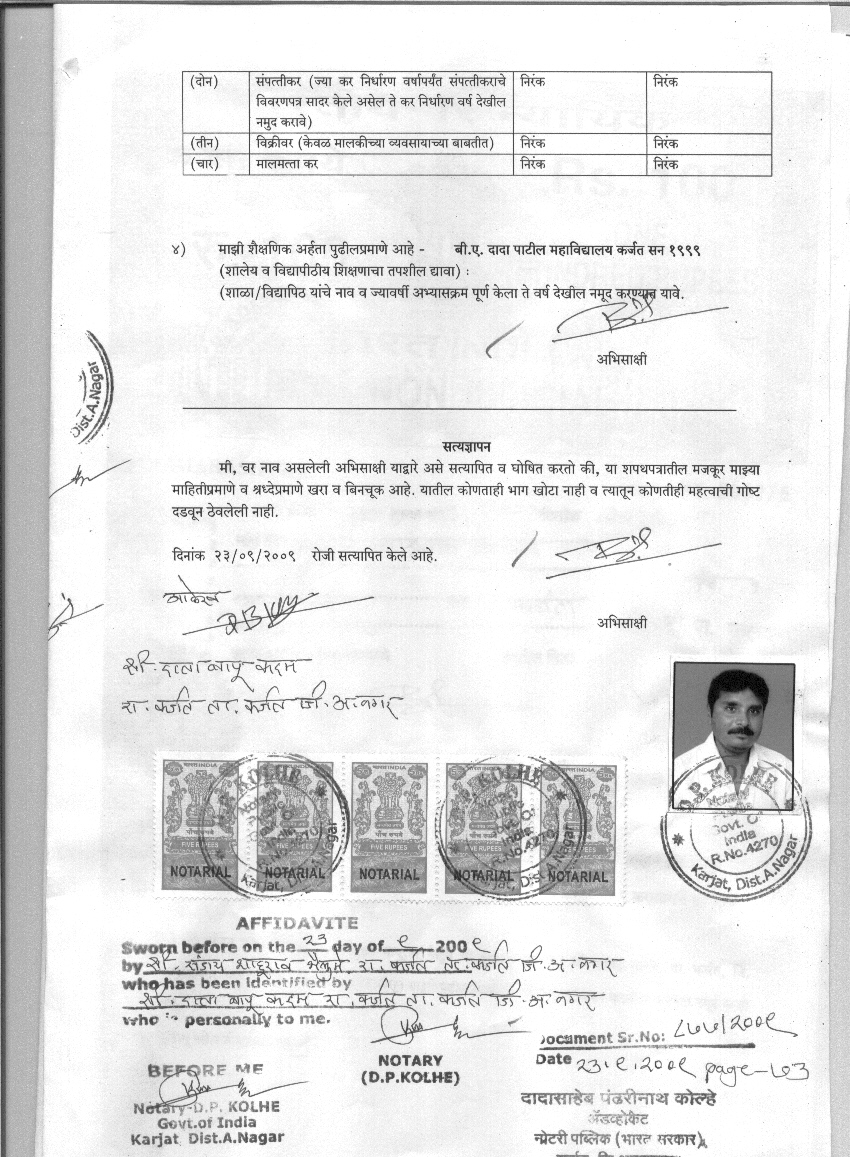 (दोन) संपत्तीकर (ज्या कर निर्धारण वर्षापर्यंत संपत्तीकराचे निरंक निरंक
विवरणपत्र सादर केले असेल ते कर निर्धारण वर्ष देखील
नमुद करावे)
(तीन) विक्रीवर (केवळ मालकीच्या व्यवसायाच्या बाबतीत) निरंक निरंक
(चार) मालमत्ता कर निरंक निरंक
४) माझी शैक्षणिक अर्हता पुढीलप्रमाणे आहे - बी.ए. दादा पाटील महाविद्यालय कर्जत सन १९९९
(शालेय व विद्यापीठीय शिक्षणाचा तपशील द्यावा) :
(शाळा/विद्यापिठ यांचे नाव व ज्यावर्षी अभ्यासक्रम पूर्ण केला ते वर्ष देखील नमूद करण्यात यावे.
अभिसाक्षी
Dist.A.Nagar
सत्यज्ञापन
मी, वर नाव असलेली अभिसाक्षी याद्वारे असे सत्यापित व घोषित करतो की, या शपथपत्रातील मजकूर माझ्या
माहितीप्रमाणे व श्रध्देप्रमाणे खरा व बिनचूक आहे. यातील कोणताही भाग खोटा नाही व त्यातून कोणतीही महत्वाची गोष्ट
दडवून ठेवलेली नाही.
दिनांक २३/०९/२००९ रोजी सत्यापित केले आहे.
अभिसाक्षी
श्री. दत्ता बापू कदम
रा. कर्जत ता. कर्जत जी. अ. नगर
भारत INDIA
पाँच रुपये
FIVE RUPEES FIVE RUPEES FIVE RUPEES FIVE RUPEES FIVE RUPEES
NOTARIAL NOTARIAL NOTARIAL NOTARIAL NOTARIAL
D.P. KOLHE
Notary
Govt. Of
India
R.No.4270
Karjat, Dist.A.Nagar
AFFIDAVITE
Sworn before on the 23 day of ९ 200९
by श्री. संजय रा. कर्जत ता. कर्जत जी. अ. नगर
who has been identified by
श्री. दत्ता बापू कदम रा. कर्जत ता. कर्जत जी. अ. नगर
who is personally to me.
NOTARY
(D.P.KOLHE)
Document Sr.No: /200९
Date 23.९.200९ page-03
BEFORE ME
Notary-D.P. KOLHE
Govt.of India
Karjat, Dist.A.Nagar
दादासाहेब पंढरीनाथ कोल्हे
ॲडव्होकेट
नोटरी पब्लिक (भारत सरकार)